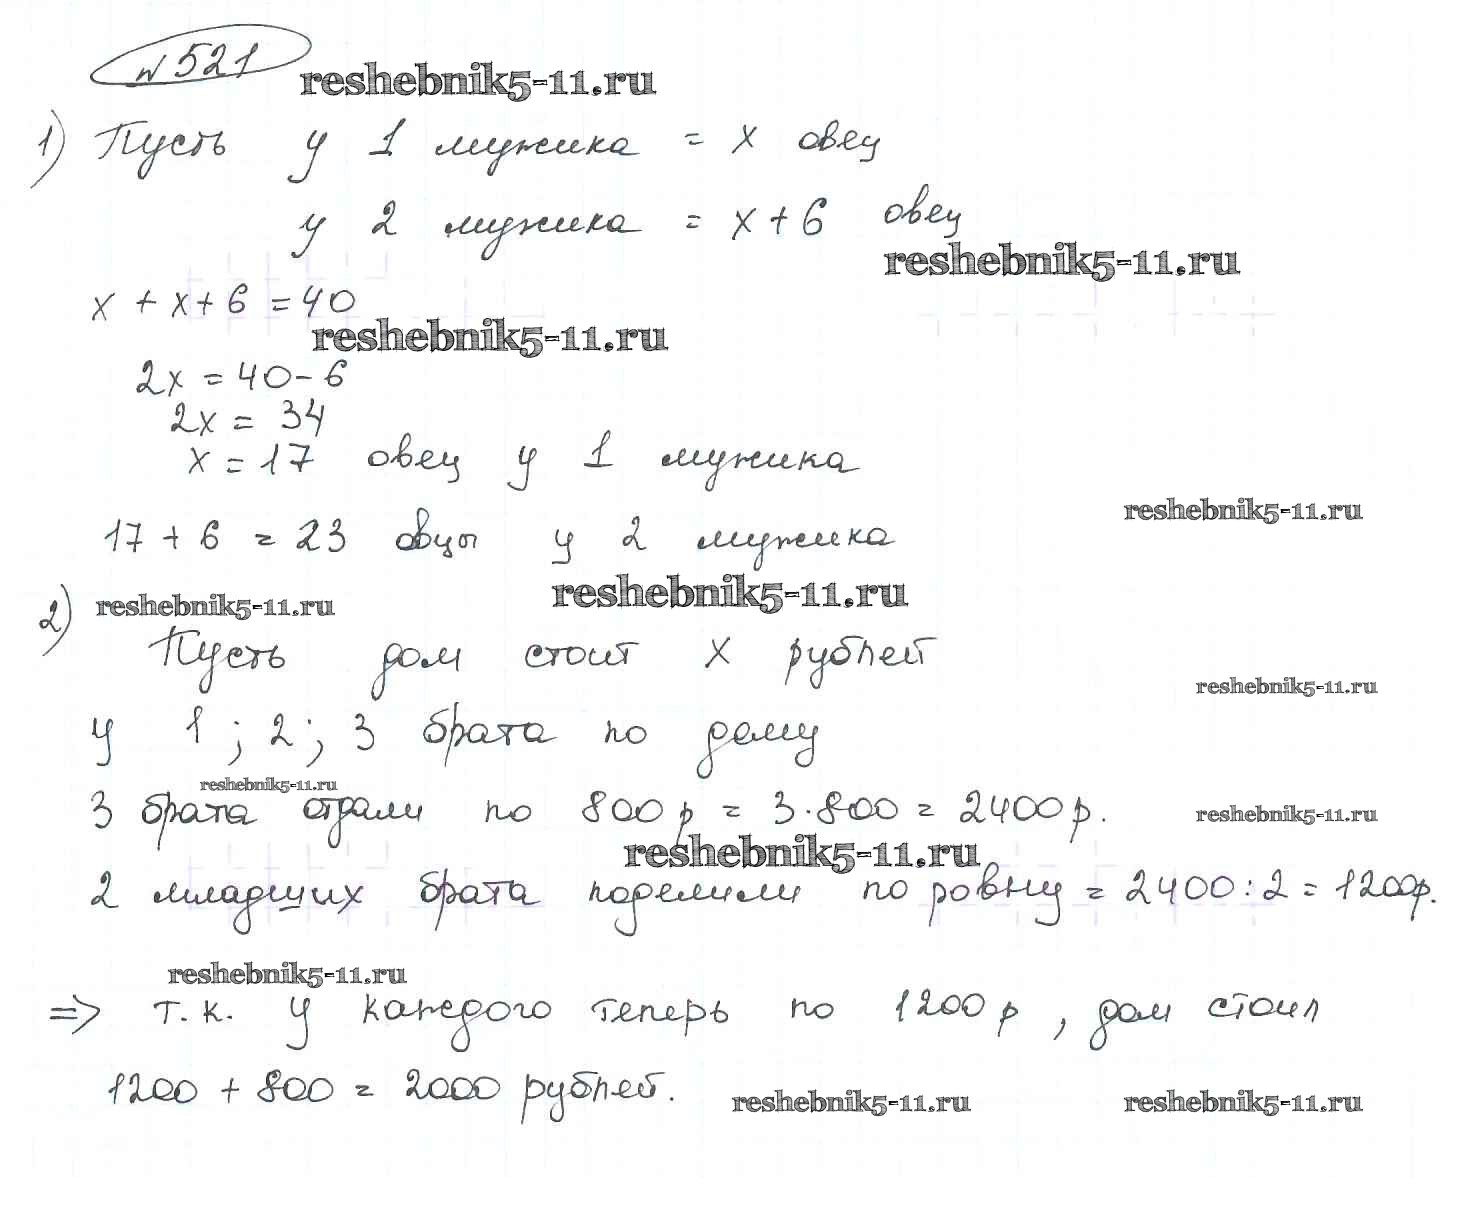 №521
reshebnik5-11.ru
1) Пусть у 1 мужика = x овец
у 2 мужика = x + 6 овец
reshebnik5-11.ru
x + x + 6 = 40
reshebnik5-11.ru
2x = 40 - 6
2x = 34
x = 17 овец у 1 мужика
reshebnik5-11.ru
17 + 6 = 23 овцы у 2 мужика
reshebnik5-11.ru
2) reshebnik5-11.ru
Пусть дом стоит x рублей
reshebnik5-11.ru
у 1; 2; 3 брата по дому
reshebnik5-11.ru
3 брата отдали по 800 р = 3·800 = 2400 р.
reshebnik5-11.ru
reshebnik5-11.ru
2 младших брата поделили по ровну = 2400 : 2 = 1200 р.
reshebnik5-11.ru
=> т.к. у каждого теперь по 1200 р, дом стоил
1200 + 800 = 2000 рублей.
reshebnik5-11.ru
reshebnik5-11.ru